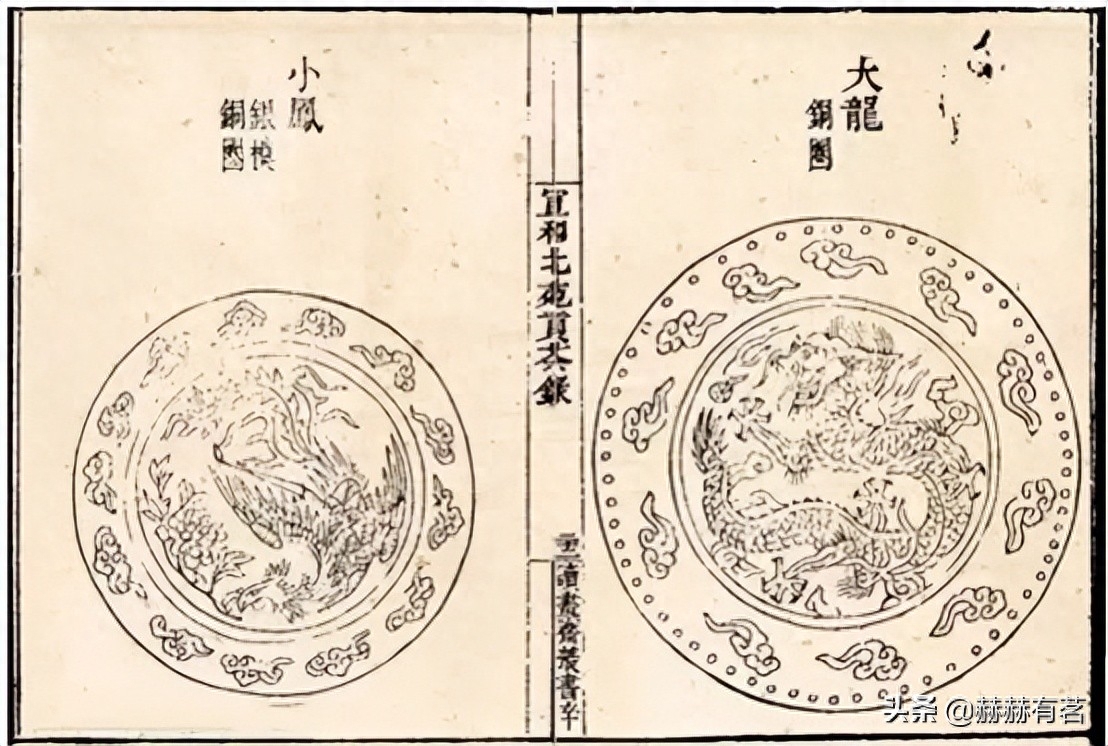 大龍
銅圈
宣和北苑貢茶錄
讀畫齋叢書辛
小鳳
銀模
銅圈
头条 @赫赫有茗